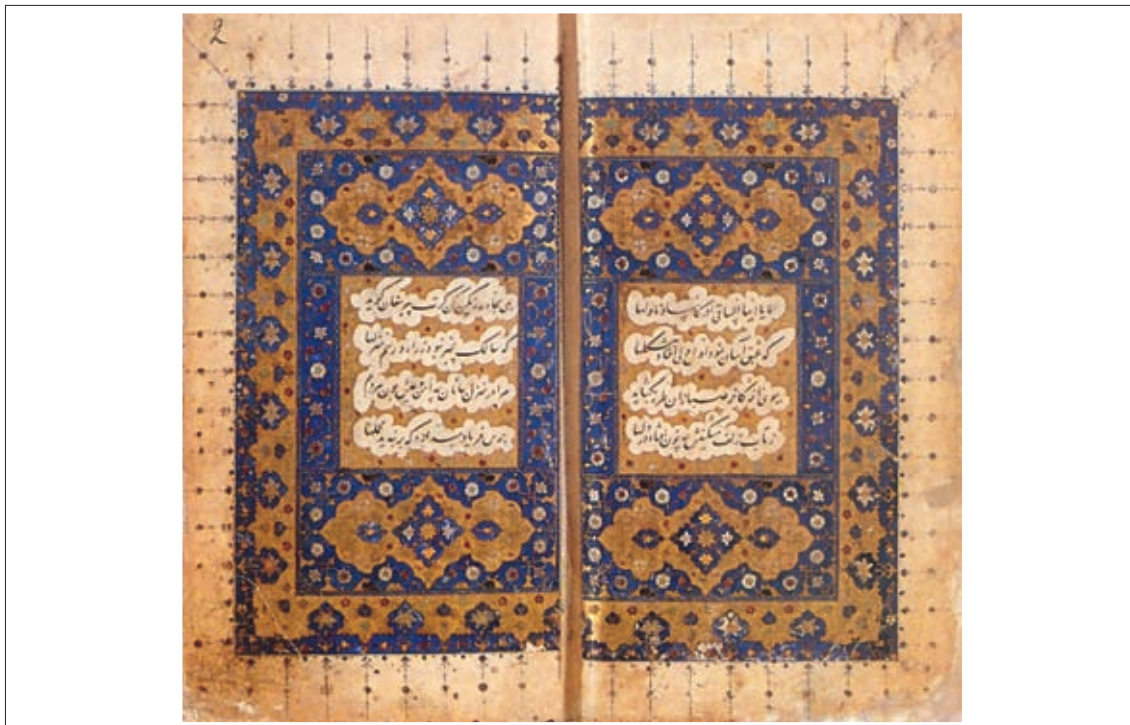 2
الا یا ایها الساقی ادر کاسا و ناولها
که عشق آسان نمود اول ولی افتاد مشکلها
ببوی نافه کاخر صبا زان طره بگشاید
ز تاب زلف مشکینش چه خون افتاد در دلها
بمی سجاده رنگین کن گرت پیر مغان گوید
که سالک بیخبر نبود ز راه و رسم منزلها
مرا در منزل جانان چه امن عیش چون هر دم
جرس فریاد میدارد که بربندید محملها